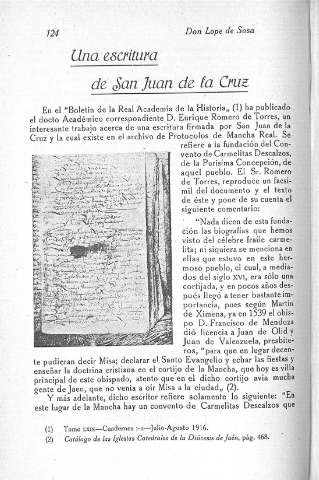 124
Don Lope de Sosa
Una escritura
de San Juan de la Cruz
En el "Boletín de la Real Academia de la Historia„ (1) ha publicado
el docto Académico correspondiente D. Enrique Romero de Torres, un
interesante trabajo acerca de una escritura firmada por San Juan de la
Cruz y la cual existe en el archivo de Protocolos de Mancha Real. Se
refiere a la fundación del Con-
vento de Carmelitas Descalzos,
de la Purísima Concepción, de
aquel pueblo. El Sr. Romero
de Torres, reproduce un facsí-
mil del documento y el texto
de éste y pone de su cuenta el
siguiente comentario:
"Nada dicen de esta funda-
ción las biografías que hemos
visto del célebre fraile carme-
lita; ni siquiera se menciona en
ellas que estuvo en este her-
moso pueblo, el cual, a media-
dos del siglo XVI, era sólo una
cortijada, y en pocos años des-
pués llegó a tener bastante im-
portancia, pues según Martín
de Ximena, ya en 1539 el obis-
po D. Francisco de Mendoza
dió licencia a Juan de Olid y
Juan de Valenzuela, presbíte-
ros, "para que en lugar decen-
te pudieran decir Misa; declarar el Santo Evangelio y echar las fiestas y
enseñar la doctrina cristiana en el cortijo de la Mancha, que hoy es villa
principal de este obispado, atento que en el dicho cortijo avía mucha
gente de Jaen, que no venía a oir Misa a la ciudad„ (2).
Y más adelante, dicho escritor refiere solamente lo siguiente: "En
este lugar de la Mancha hay un convento de Carmelitas Descalzos que
(1) Tomo LXIX—Cuadernos —Julio-Agosto 1916.
(2) Catálogo de las Iglesias Catedrales de la Diócesis de Jaén, pág. 468.